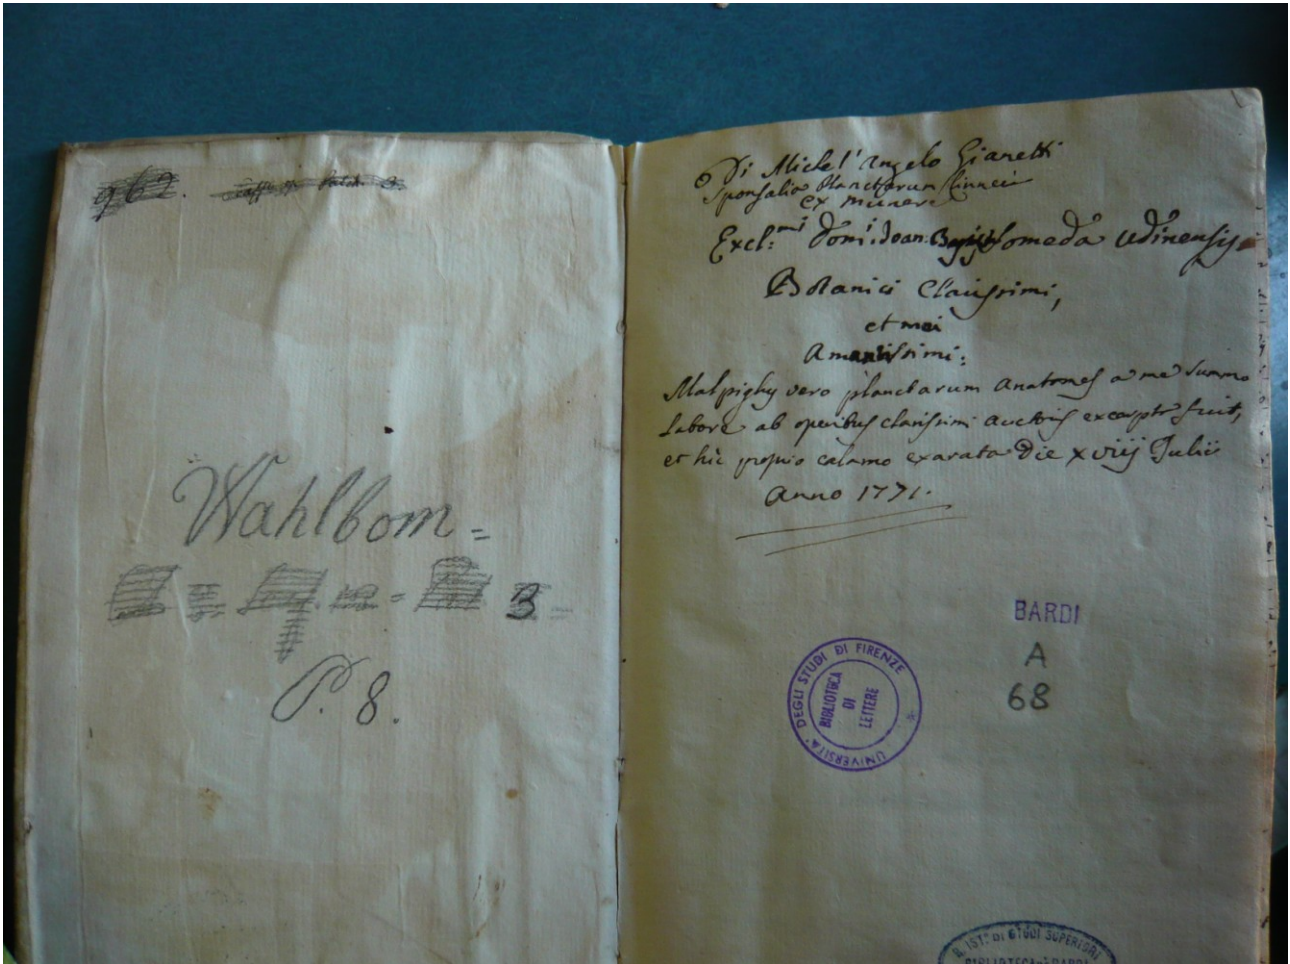 962.
Wahlbom =
3
P. 8.
Di Michel' Angelo Gianetti
Sponsalia Planctarum Linnei
ex munere
Excl:mi Domi Joan: Udinensis
Botanici Clarissimi,
et mei
Amantissimi:
Malpighy vero planctarum anatomes a me summo
labore ab operibus clarissimi auctoris excerpta fuit,
et hic proprio calamo exarata Die xviij Julii
Anno 1771.
BARDI
A
68
UNIVERSITA' DEGLI STUDI DI FIRENZE
BIBLIOTECA
DI
LETTERE
R. IST. DI STUDI SUPERIORI
BIBLIOTECA BARDI